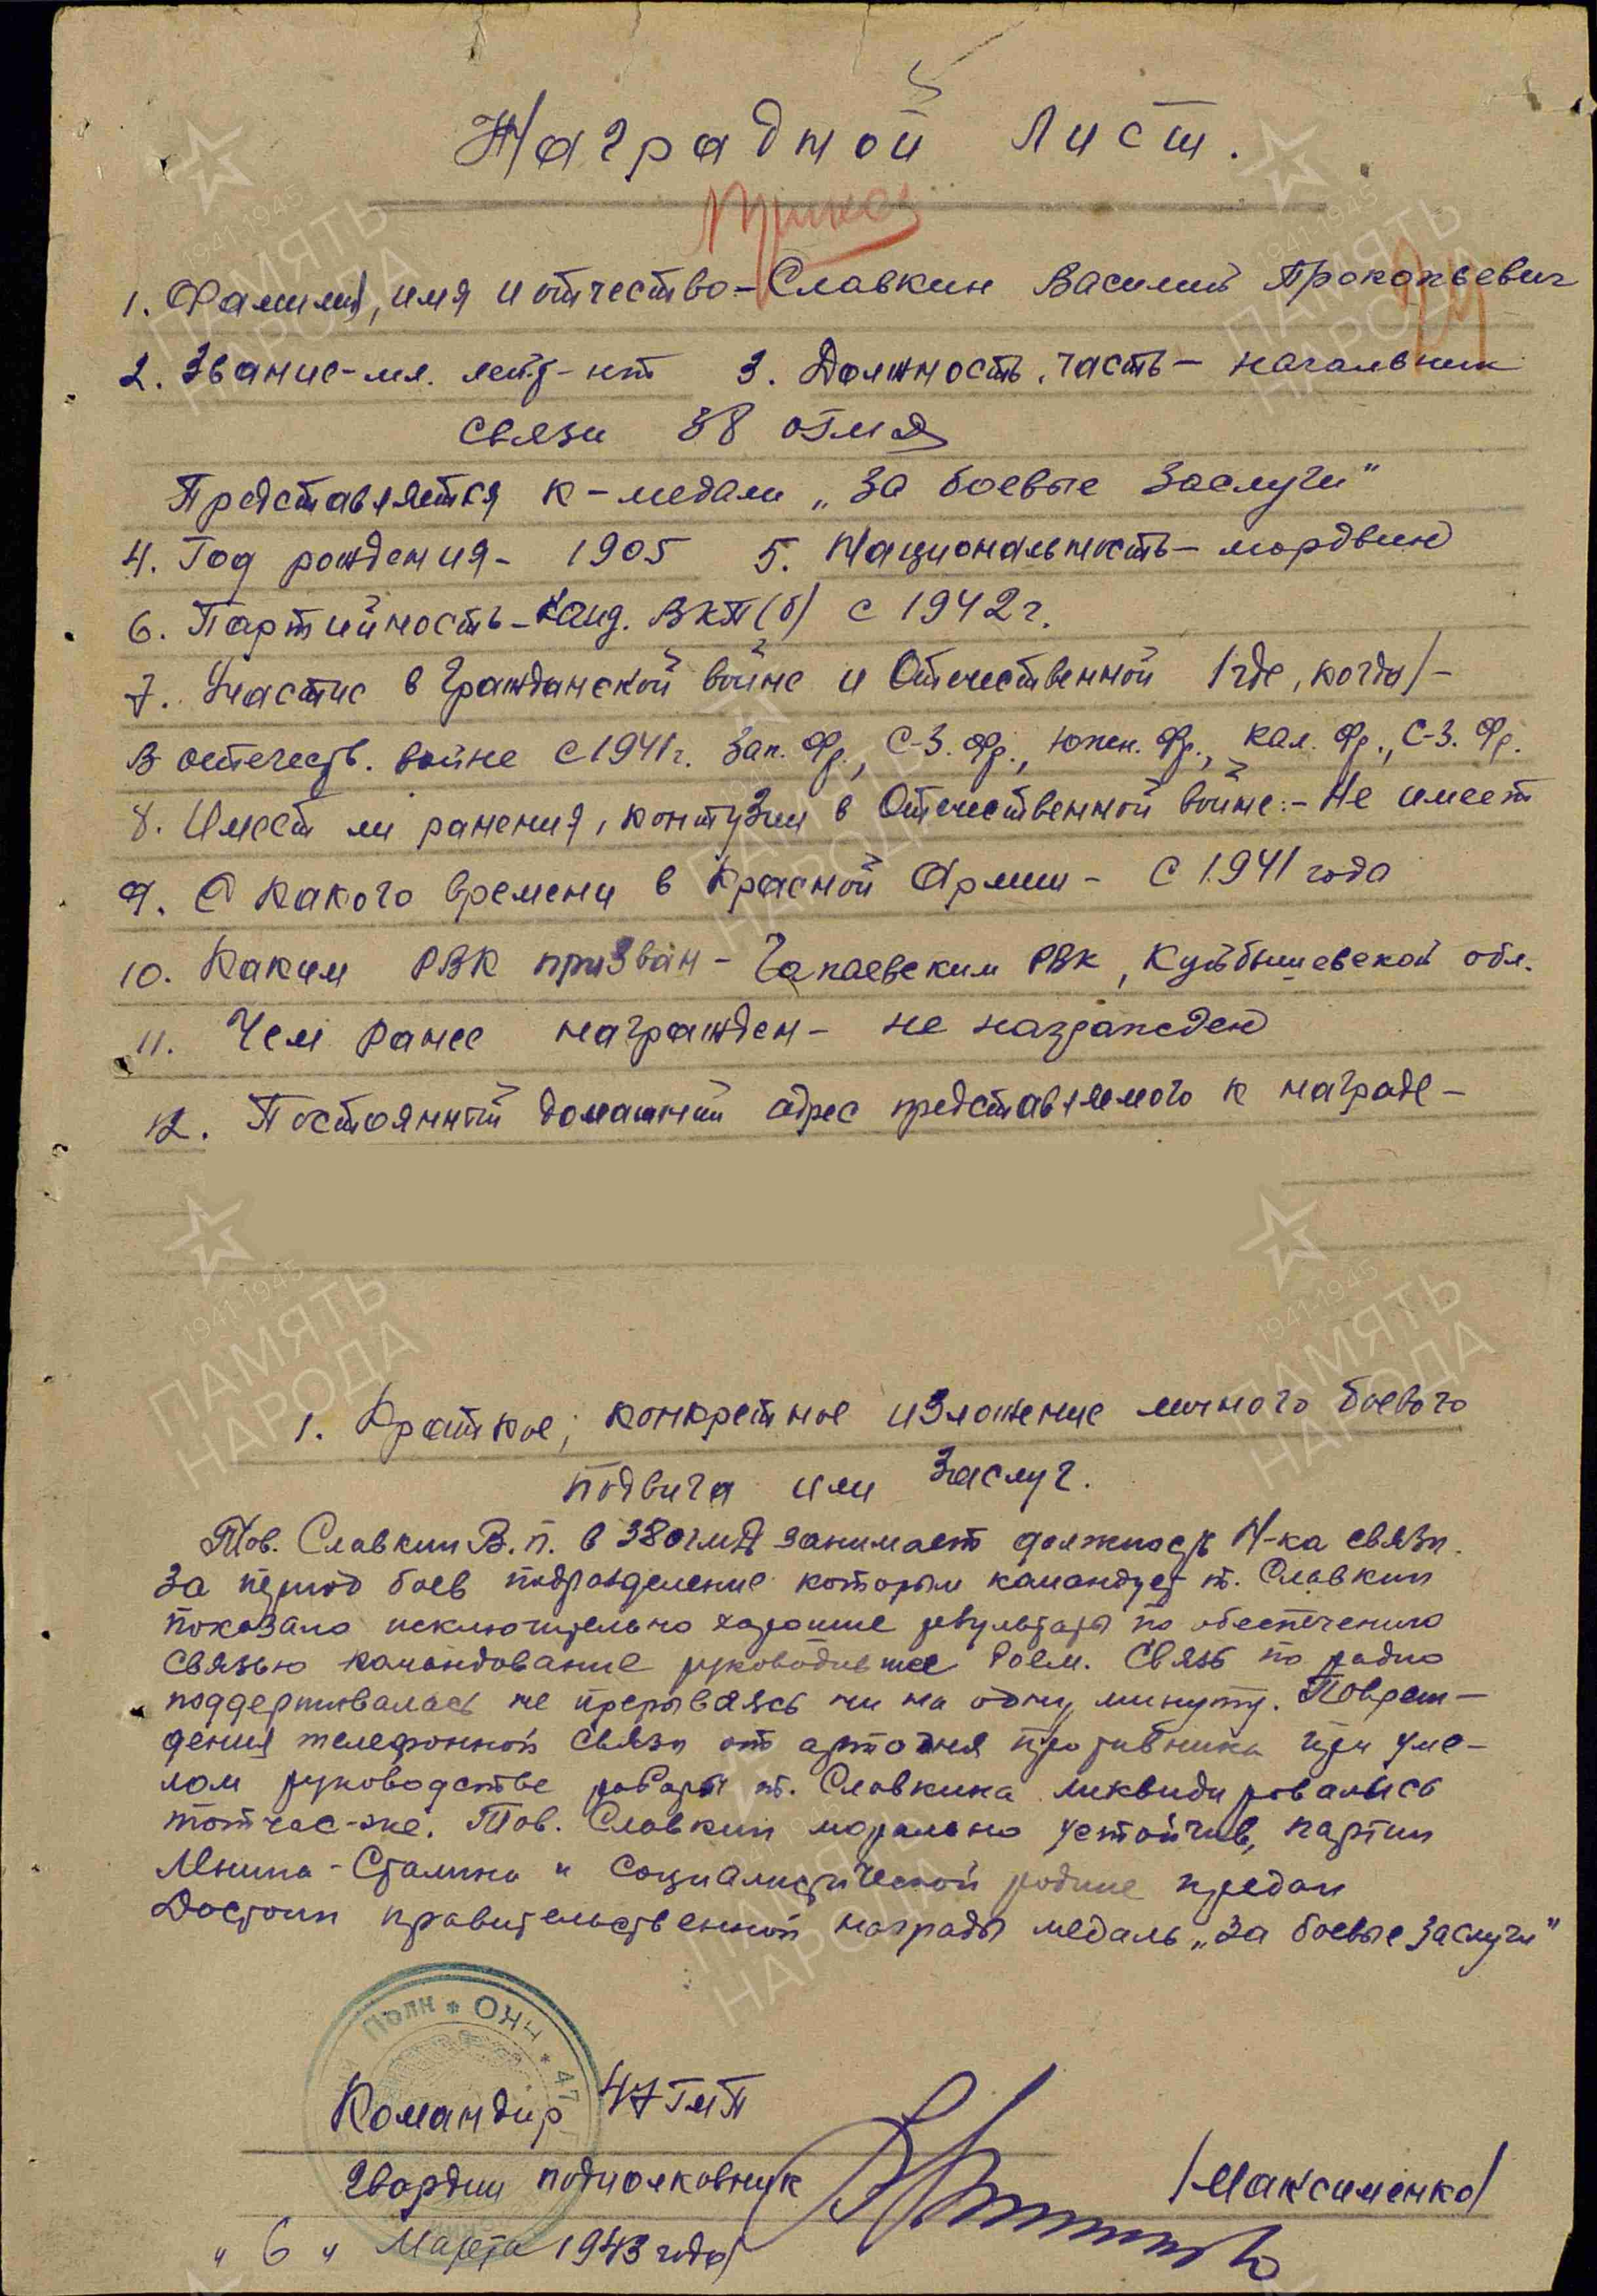 Наградной лист.
Приказ
1. Фамилия, имя и отчество – Славкин Василий Прокопьевич
2. Звание – мл. лейт-нт 3. Должность, часть – начальник
связи 38 огмд
Представляется к – медали „За боевые заслуги"
4. Год рождения – 1905 5. Национальность – мордвин
6. Партийность – канд. ВКП(б) с 1942 г.
7. Участие в гражданской войне и Отечественной /где, когда/ –
В отечеств. войне с 1941 г. Зап. Фр., С-З. Фр., Южн. Фр., Кал. Фр., С-З. Фр.
8. Имеет ли ранения, контузии в Отечественной войне: – Не имеет
9. С какого времени в Красной Армии – С 1941 года
10. Каким РВК призван – Чапаевским РВК, Куйбышевской обл.
11. Чем ранее награжден – не награжден
12. Постоянный домашний адрес представляемого к награде –
1. Краткое, конкретное изложение личного боевого
подвига или заслуг.
Тов. Славкин В. П. в 38 огмд занимает должность Н-ка связи.
За период боев подразделение которым командует т. Славкин
показало исключительно хорошие результаты по обеспечению
связью командование руководившее боем. Связь по радио
поддерживалась не прерываясь ни на одну минуту. Повреж-
дения телефонной связи от артогня противника при уме-
лом руководстве работы т. Славкина ликвидировались
тотчас-же. Тов. Славкин морально устойчив, партии
Ленина - Сталина и социалистической родине предан
Достоин правительственной награды медаль „За боевые заслуги"
Командир 47 ГМП
Гвардии подполковник /Максименко/
„ 6 " Марта 1943 года